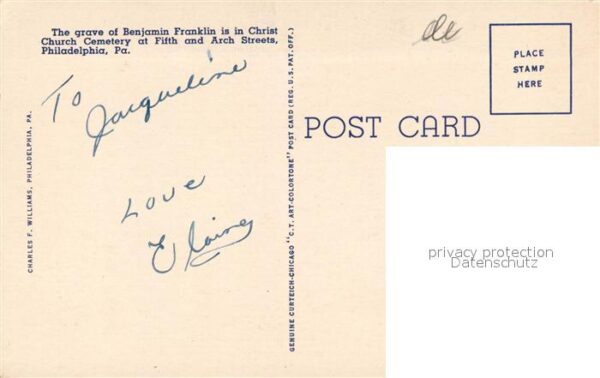 The grave of Benjamin Franklin is in Christ
Church Cemetery at Fifth and Arch Streets,
Philadelphia, Pa.
To
Jacqueline
Love
Elaine
CHARLES F. WILLIAMS, PHILADELPHIA, PA.
GENUINE CURTEICH-CHICAGO "C. T. ART-COLORTONE" POST CARD (REG. U. S. PAT. OFF.)
POST CARD
PLACE
STAMP
HERE
privacy protection
Datenschutz